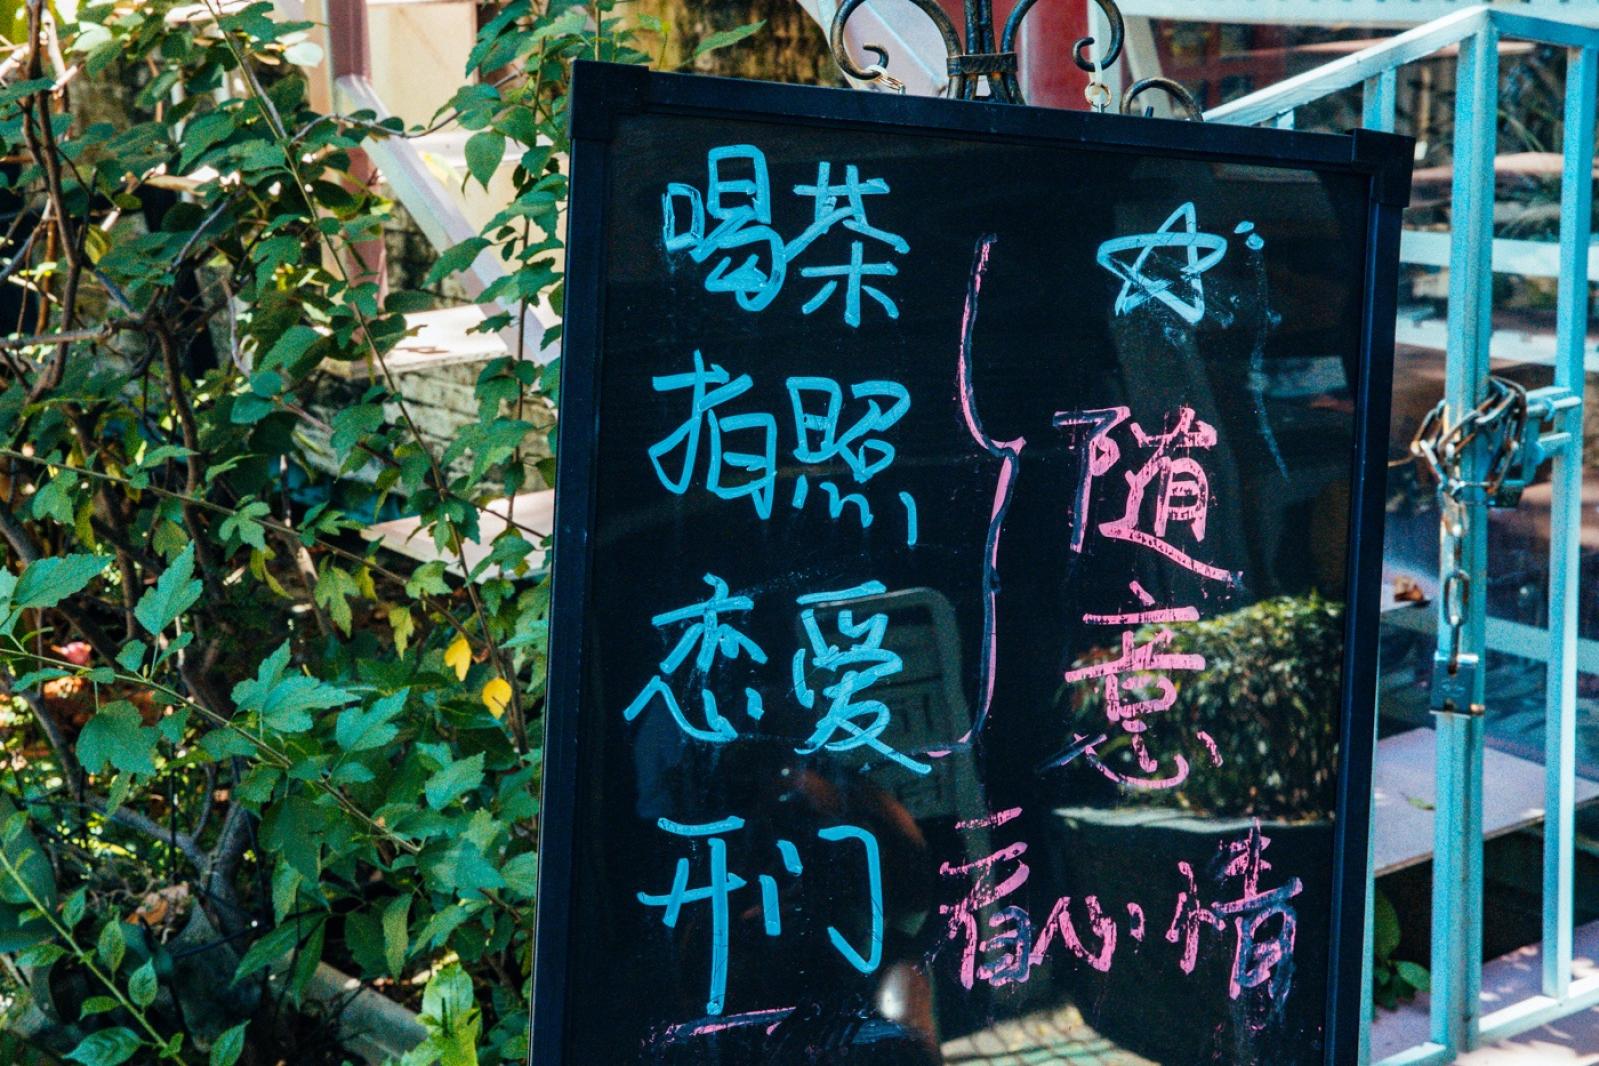 喝茶
拍照
恋爱
随意
开门 看心情